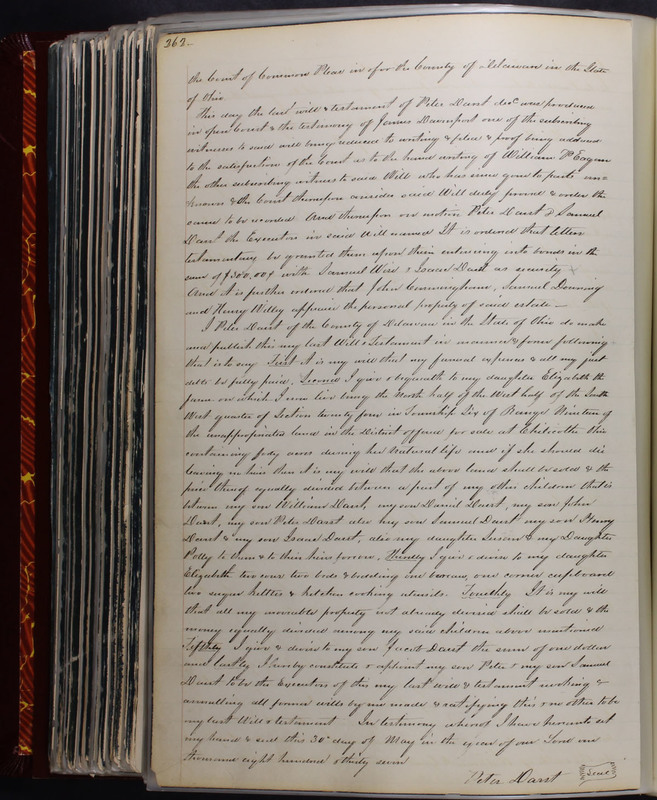 262.
the Court of Common Pleas in & for the County of Delaware in the State
of Ohio
This day the last will & testament of Peter Darst decd was produced
in open Court & the testimony of James Davenport one of the subscribing
witnesses to said will being reduced to writing & filed & proof being adduced
to the satisfaction of the Court as to the hand writing of William
the other subscribing witness to said Will who has since gone to parts un-
known & the Court thereupon consider said Will duly proved & order the
same to be recorded. And thereupon on motion Peter Darst & Samuel
Darst the Executors in said Will named It is ordered that letters
testamentary be granted them upon their entering into bonds in the
sum of $300.00 with Samuel Wise & Isaac Darst as security
And it is further ordered that John Cunningham, Samuel Dunning
and Henry Willey appraise the personal property of said estate —
I Peter Darst of the County of Delaware in the State of Ohio do make
and publish this my last Will & Testament in manner & form following
that is to say First it is my will that my funeral expenses & all my just
debts be fully paid. Second I give & bequeath to my daughter Elizabeth the
farm on which I now live being the North half of the West half of the South
West quarter of Section twenty four in Township Six of Range Nineteen of
the unappropriated land in the District offered for sale at Chilicothe Ohio
containing forty acres during her natural life and if she should die
leaving no heirs then it is my will that the above land shall be sold & the
price thereof equally divided between a part of my other children that is
between my son William Darst, my son Daniel Darst, my son John
Darst, my son Peter Darst also my son Samuel Darst my son Henry
Darst & my son Isaac Darst, also my daughter Susan & my Daughter
Polly to them & to their heirs forever. Thirdly I give & devise to my daughter
Elizabeth two cows two beds & bedding one bureau, one corner cupboard
two sugar kettles & kitchen cooking utensils. Fourthly It is my will
that all my moveable property not already devised shall be sold & the
money equally divided among my said children above mentioned
Fifthly I give & devise to my son Jacob Darst the sum of one dollar
and lastly I hereby constitute & appoint my son Peter & my son Samuel
Darst to be the Executors of this my last will & testament revoking &
annulling all former wills by me made & ratifying this & no other to be
my last Will & testament In testimony whereof I have hereunto set
my hand & seal this 30th day of May in the year of our Lord one
thousand eight hundred & thirty seven
Peter Darst Seal